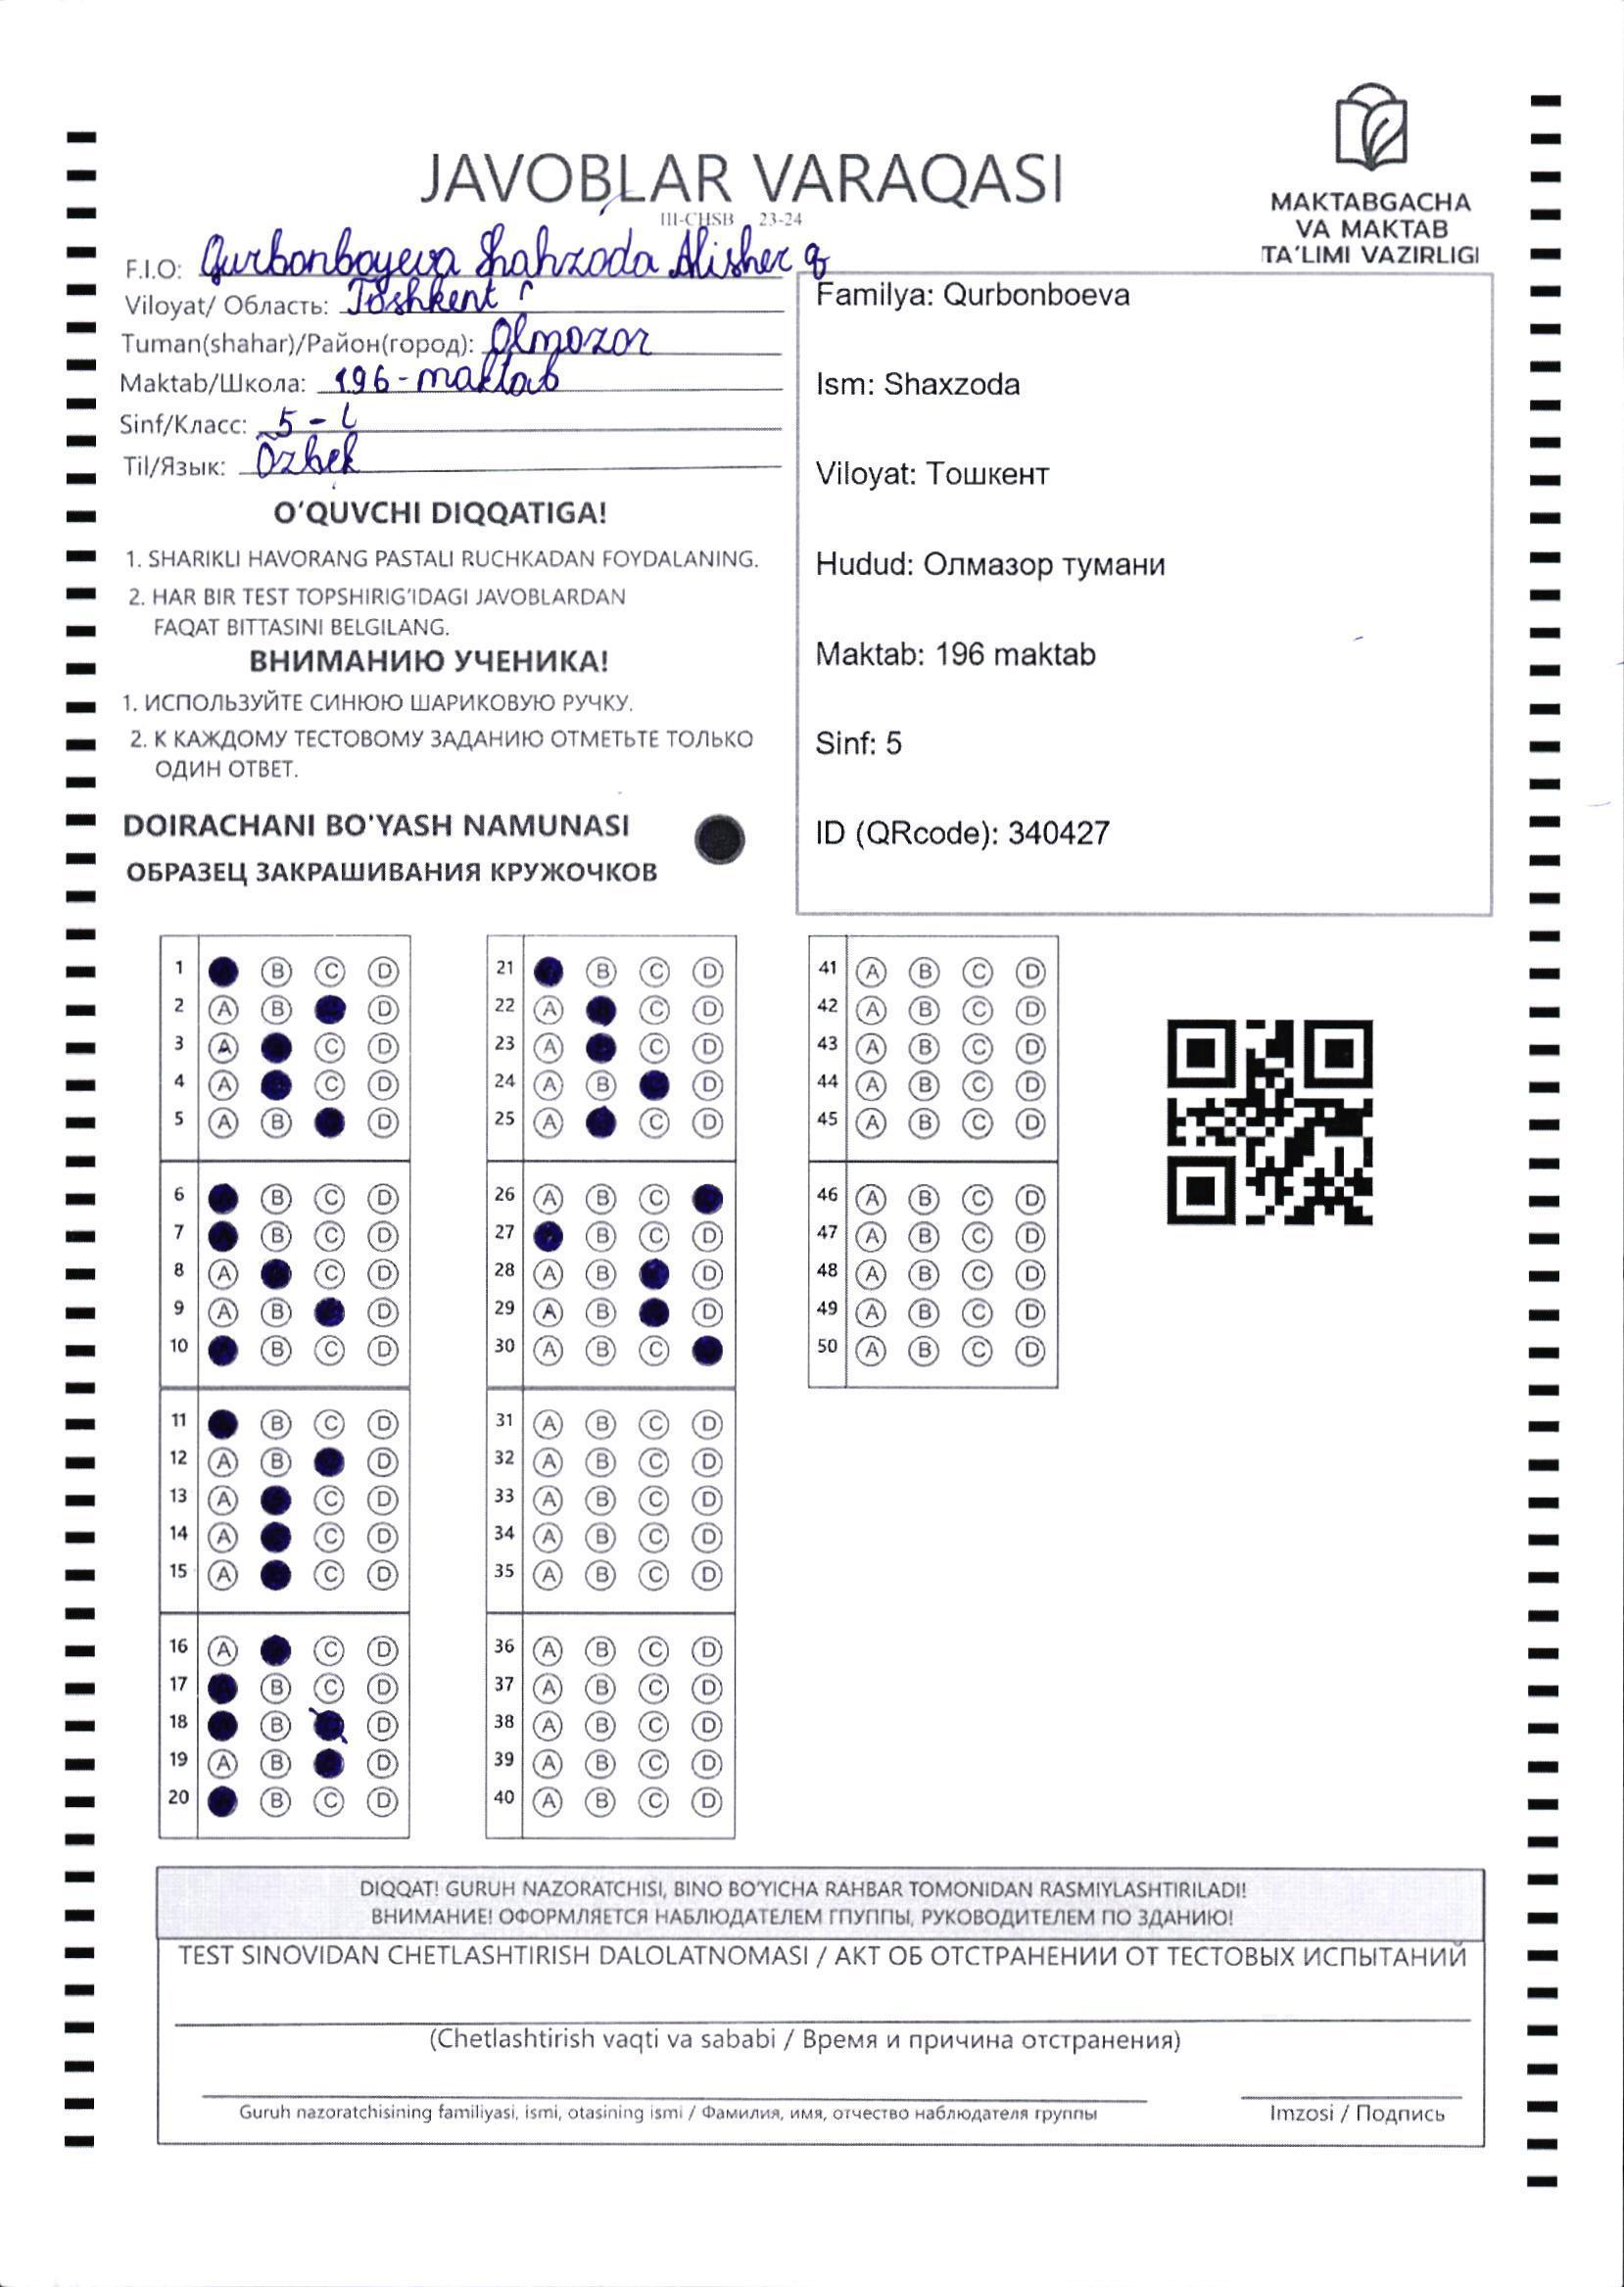 JAVOBLAR VARAQASI
III-CHSB 23-24
MAKTABGACHA
VA MAKTAB
TA'LIMI VAZIRLIGI
F.I.O: Qurbonboyeva Shahzoda Alisher q
Viloyat/ Область: Toshkent
Tuman(shahar)/Район(город): Olmozor
Maktab/Школа: 196-maktab
Sinf/Класс: 5-
Til/Язык: Ozbek
O'QUVCHI DIQQATIGA!
1. SHARIKLI HAVORANG PASTALI RUCHKADAN FOYDALANING.
2. HAR BIR TEST TOPSHIRIG'IDAGI JAVOBLARDAN
FAQAT BITTASINI BELGILANG.
ВНИМАНИЮ УЧЕНИКА!
1. ИСПОЛЬЗУЙТЕ СИНЮЮ ШАРИКОВУЮ РУЧКУ.
2. К КАЖДОМУ ТЕСТОВОМУ ЗАДАНИЮ ОТМЕТЬТЕ ТОЛЬКО
ОДИН ОТВЕТ.
DOIRACHANI BO'YASH NAMUNASI
ОБРАЗЕЦ ЗАКРАШИВАНИЯ КРУЖОЧКОВ
Familya: Qurbonboeva
Ism: Shaxzoda
Viloyat: Тошкент
Hudud: Олмазор тумани
Maktab: 196 maktab
Sinf: 5
ID (QRcode): 340427
1 B C D
2 A B D
3 A C D
4 A C D
5 A B D
6 B C D
7 B C D
8 A C D
9 A B D
10 B C D
11 B C D
12 A B D
13 A C D
14 A C D
15 A C D
16 A C D
17 B C D
18 B D
19 A B D
20 B C D
21 B C D
22 A C D
23 A C D
24 A B D
25 A C D
26 A B C
27 B C D
28 A B D
29 A B D
30 A B C
31 A B C D
32 A B C D
33 A B C D
34 A B C D
35 A B C D
36 A B C D
37 A B C D
38 A B C D
39 A B C D
40 A B C D
41 A B C D
42 A B C D
43 A B C D
44 A B C D
45 A B C D
46 A B C D
47 A B C D
48 A B C D
49 A B C D
50 A B C D
DIQQAT! GURUH NAZORATCHISI, BINO BO'YICHA RAHBAR TOMONIDAN RASMIYLASHTIRILADI!
ВНИМАНИЕ! ОФОРМЛЯЕТСЯ НАБЛЮДАТЕЛЕМ ГПУППЫ, РУКОВОДИТЕЛЕМ ПО ЗДАНИЮ!
TEST SINOVIDAN CHETLASHTIRISH DALOLATNOMASI / АКТ ОБ ОТСТРАНЕНИИ ОТ ТЕСТОВЫХ ИСПЫТАНИЙ
(Chetlashtirish vaqti va sababi / Время и причина отстранения)
Guruh nazoratchisining familiyasi, ismi, otasining ismi / Фамилия, имя, отчество наблюдателя группы
Imzosi / Подпись